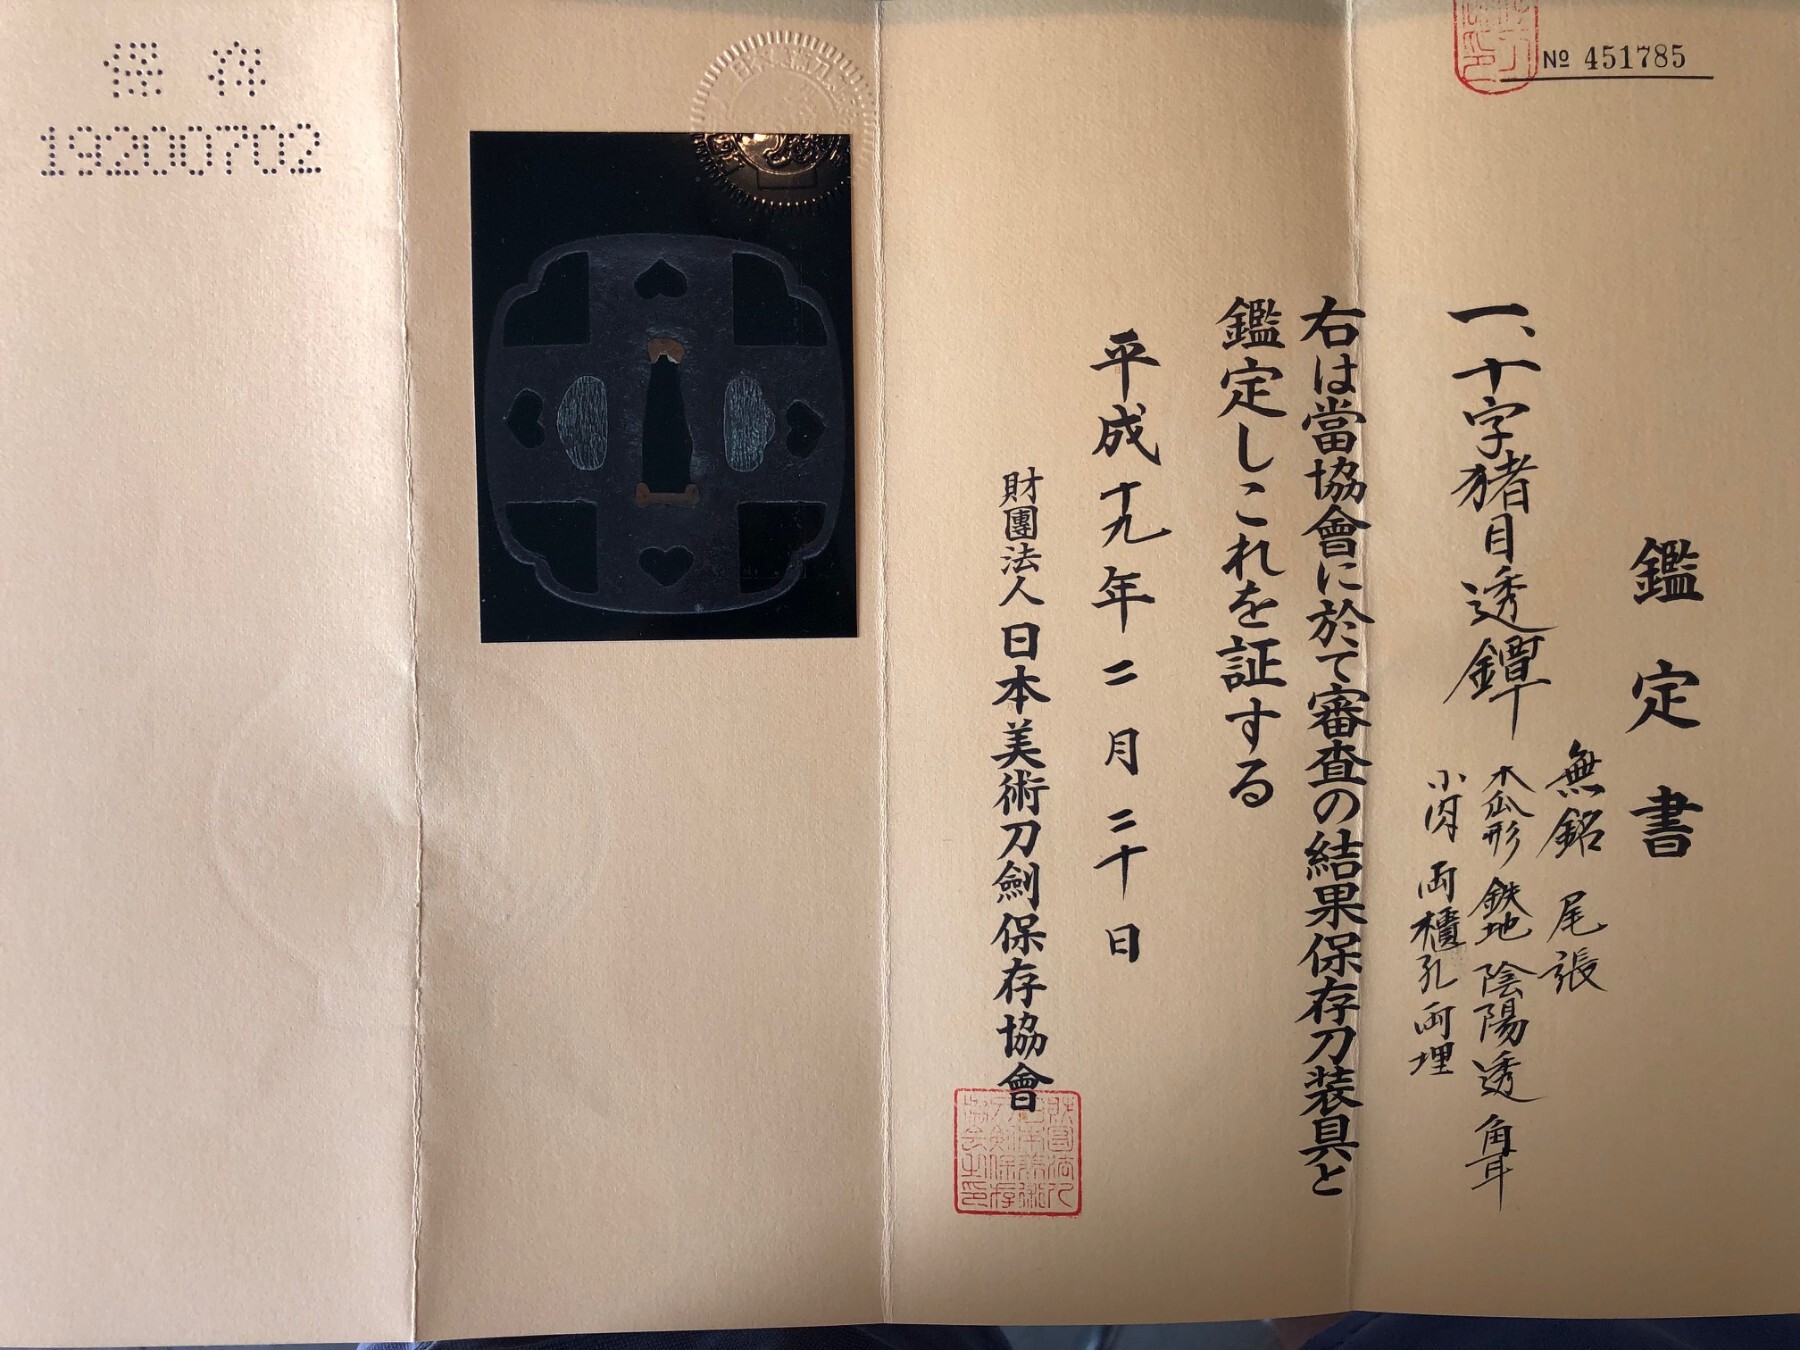 № 451785
鑑定書
一、十字猪目透鐔
無銘 尾張
木瓜形 鉄地 陰陽透 角耳
小肉 両櫃孔両埋
右は當協會に於て審査の結果保存刀装具と
鑑定しこれを証する
平成十九年二月二十日
財團法人日本美術刀劍保存協會
保存
19200702